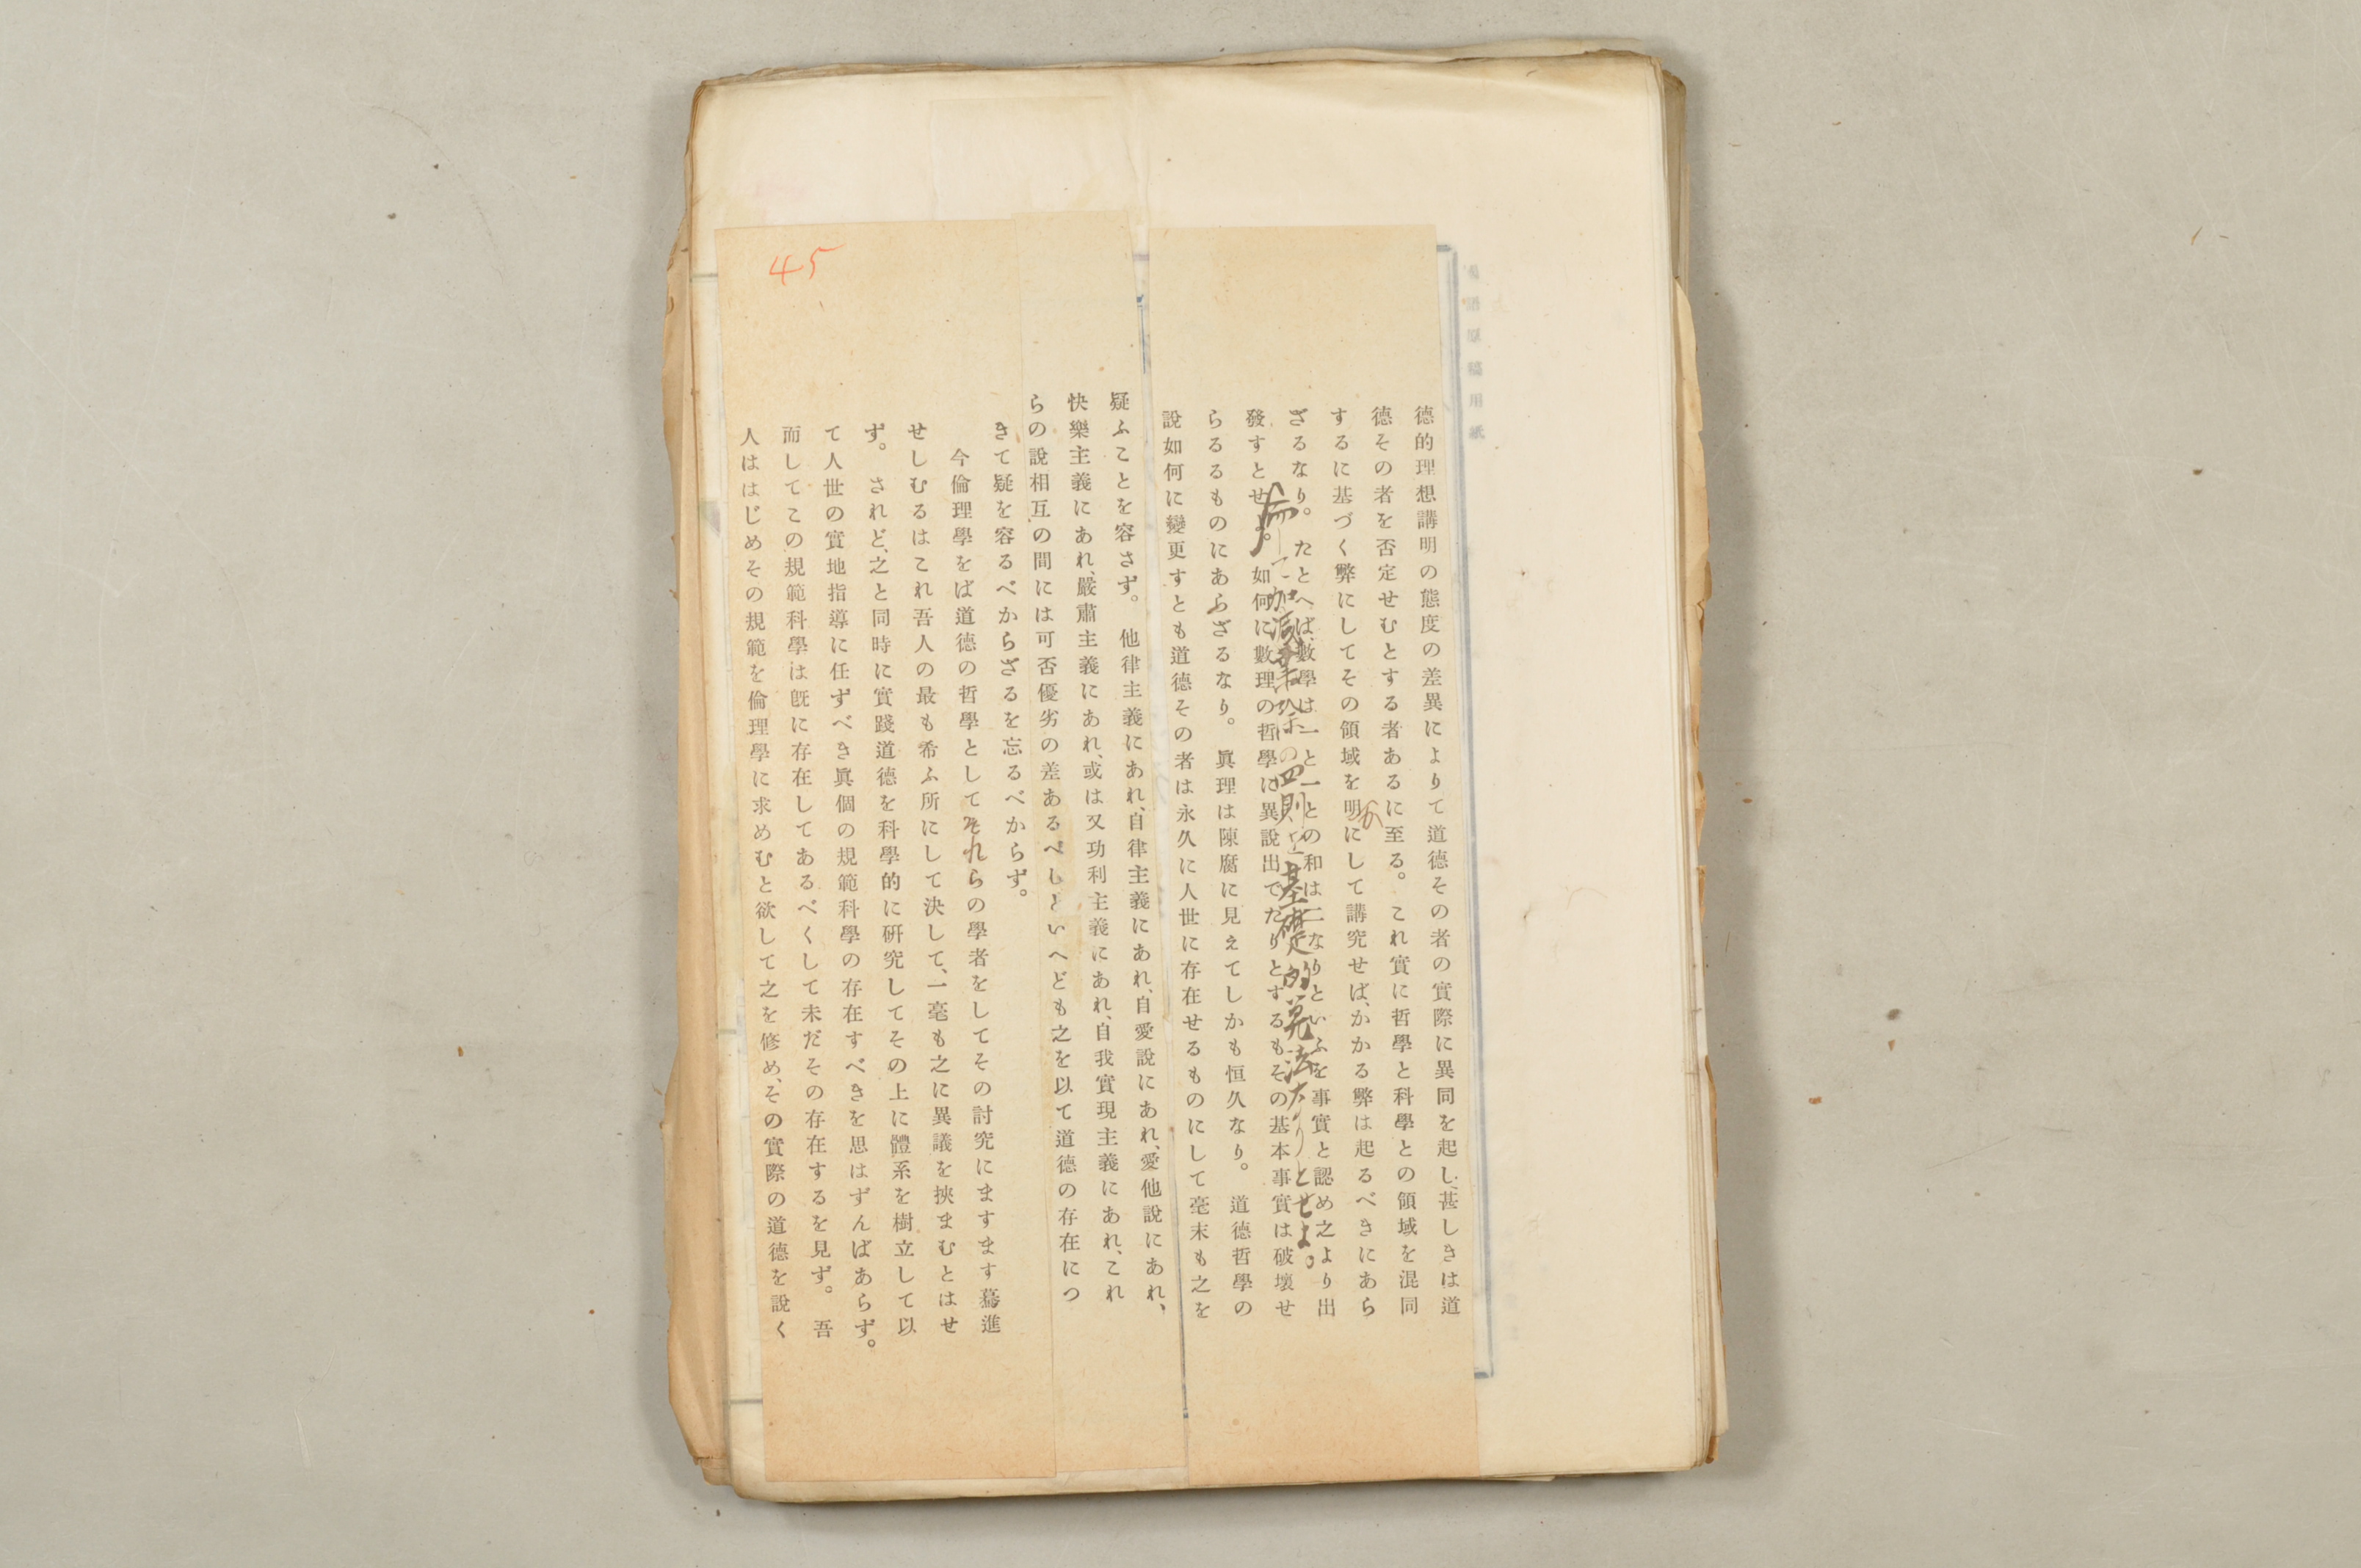 原稿用紙
德的理想講明の態度の差異によりて道德その者の實際に異同を起し、甚しきは道
德その者を否定せむとする者あるに至る。これ實に哲學と科學との領域を混同
するに基づく弊にしてその領域を明かにして講究せば、かかる弊は起るべきにあら
ざるなり。たとへば、數學は一と一との和は二なりといふを事實と認め之より出
而して加減乘除の四則を基礎的算法なりとせよ。
發すとせよ。如何に數理の哲學に異說出でたりとするもその基本事實は破壞せ
らるるものにあらざるなり。眞理は陳腐に見えてしかも恒久なり。道德哲學の
說如何に變更すとも道德その者は永久に人世に存在せるものにして毫末も之を
疑ふことを容さず。他律主義にあれ、自律主義にあれ、自愛說にあれ、愛他說にあれ、
快樂主義にあれ、嚴肅主義にあれ、或は又功利主義にあれ、自我實現主義にあれ、これ
らの說相互の間には可否優劣の差あるべしといへども之を以て道德の存在につ
きて疑を容るべからざるを忘るべからず。
今倫理學をば道德の哲學としてそれらの學者をしてその討究にますます驀進
せしむるはこれ吾人の最も希ふ所にして決して、一毫も之に異議を挾まむとはせ
ず。されど、之と同時に實踐道德を科學的に硏究してその上に體系を樹立して以
て人世の實地指導に任ずべき眞個の規範科學の存在すべきを思はずんばあらず。
而してこの規範科學は旣に存在してあるべくして未だその存在するを見ず。吾
人ははじめその規範を倫理學に求めむと欲して之を修め、その實際の道德を說く
45